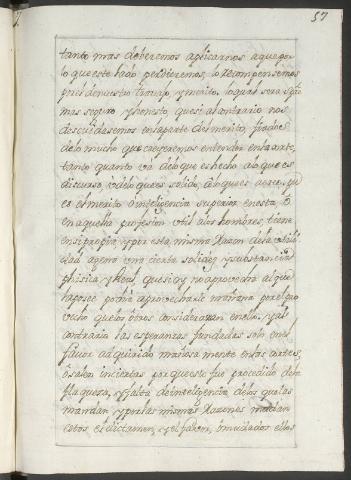 57
tanto mas deberemos aplicarnos aque por
lo que este lado perdieremos, lo recompensemos
por el de nuestro trabajo, y merito, loqual sera siempre
mas seguro y honesto, que si al contrario nos
descuidasemos en la parte del merito, fiados
de lo mucho que creyeremos entender en la arte,
tanto quanto va de lo que es hecho a lo que es
discurso, u de lo que es solido, a lo que es aereo. Y
es el merito ò inteligencia superior en esta, ò
en aquella profesion util a los hombres, tiene
en si propia, y por esta misma razon de la utili
dad agena una cierta solidez, y substancia
phisica, y Real, que si oy no aprovecha al que
la posee podrà aprovecharle mañana por el pro
vecho que los otros consideraran en ella. y al
contrario las esperanzas fundadas sobre el
favor adquirido mañosamente en las artes,
ò salen inciertas por que este fue procedido de la
flaqueza, y falta de inteligencia de los que las
mandan, y por las mismas razones mudan
estos el dictamen, y el favor, ò mudados ellos